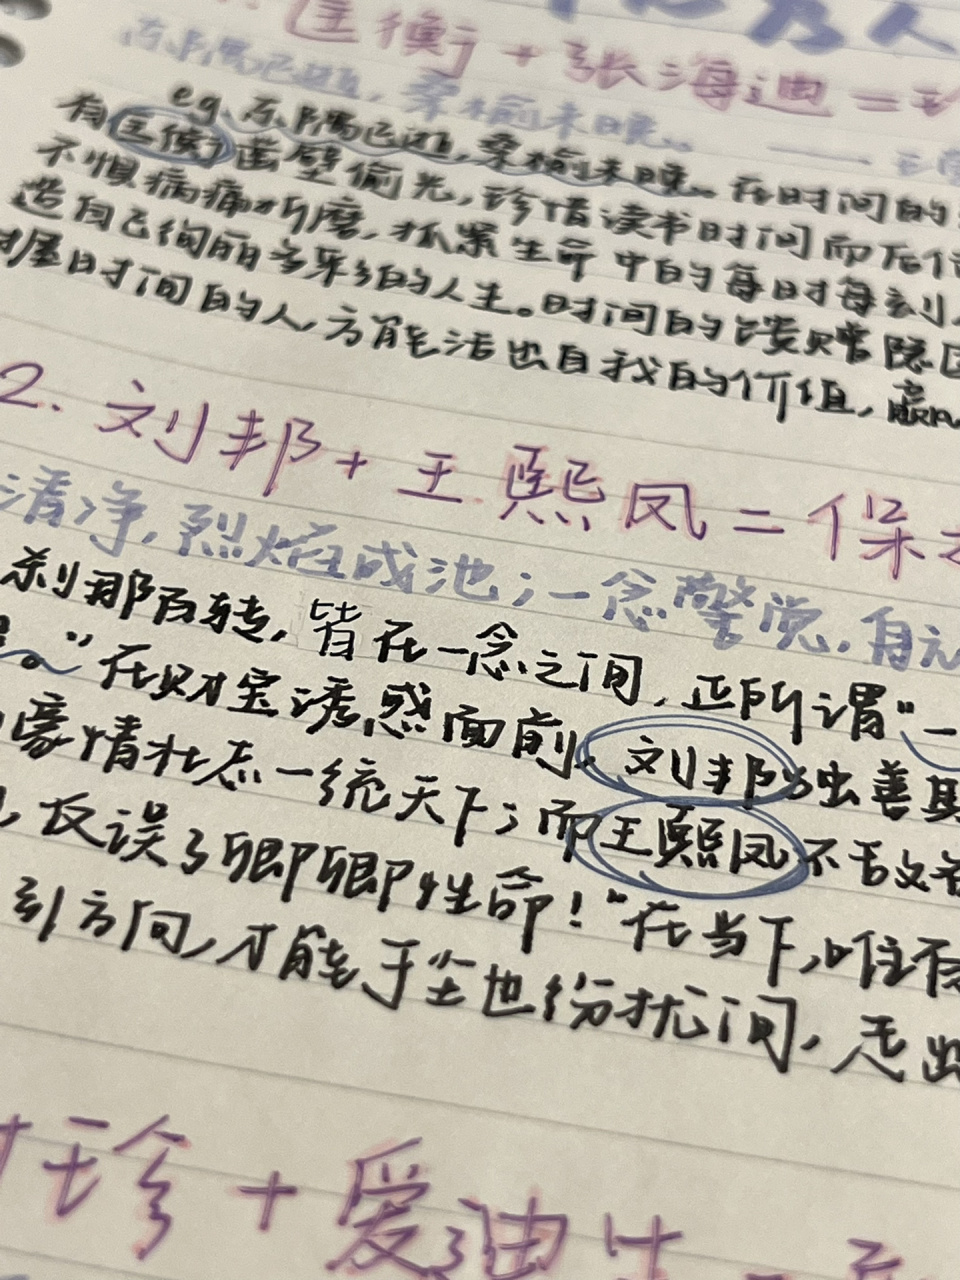 及人
匡衡+张海迪=
东隅已逝,桑榆未晚。
eg、东隅已逝,桑榆未晚。在时间的
有匡衡凿壁偷光,珍惜读书时间而后
不惧病痛折磨,抓紧生命中的每时每刻,
造自己绚丽多彩的人生。时间的馈赠隐
时间的人,方能活出自我的价值,赢
2.刘邦+王熙凤=保
清净,烈焰成池;一念警觉,自
刹那百转,皆在一念之间,正所谓“一
”在财宝诱惑面前,刘邦独善其
豪情壮志一统天下;而王熙凤不
反误了卿卿性命!“在当下,唯有
引方向,才能于尘世纷扰间,走出
珍+爱迪生=